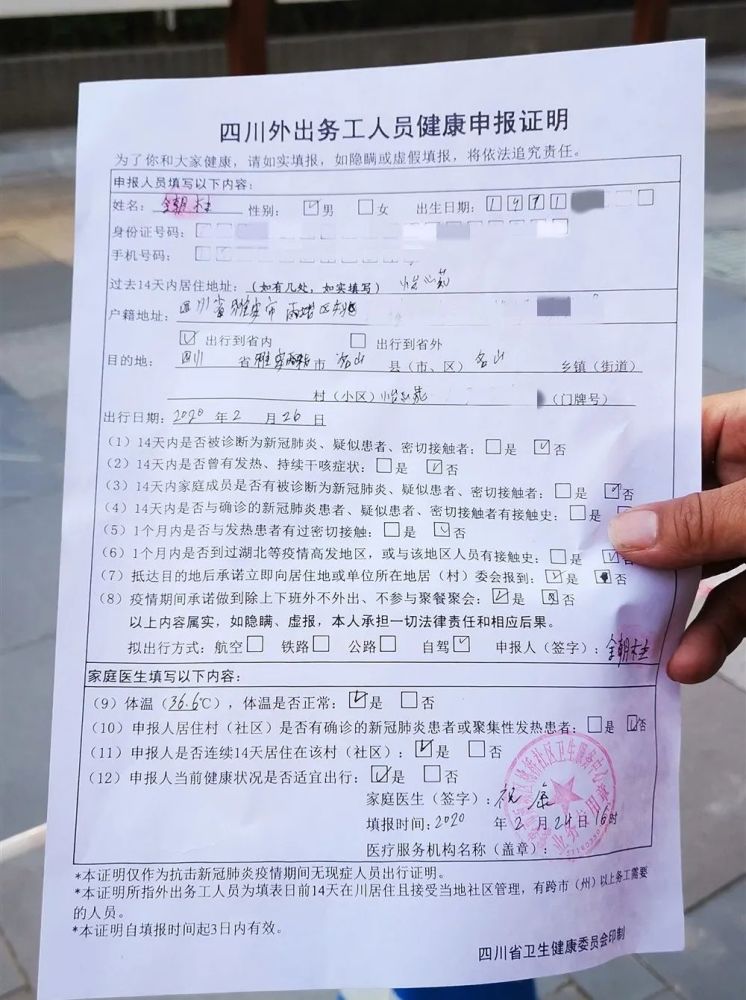 四川外出务工人员健康申报证明
为了你和大家健康，请如实填报，如隐瞒或虚假填报，将依法追究责任。
申报人员填写以下内容：
姓名：金朝柱 性别：☑男 □女 出生日期：1971
身份证号码：
手机号码：
过去14天内居住地址：（如有几处，如实填写）怡心苑
户籍地址：四川省雅安市雨城区
☑出行到省内 □出行到省外
目的地：四川 省雅安 市 名山 县（市、区）名山 乡镇（街道）
村（小区）怡心苑 （门牌号）
出行日期：2020 年 2 月 26 日
（1）14天内是否被诊断为新冠肺炎、疑似患者、密切接触者：□是 ☑否
（2）14天内是否曾有发热、持续干咳症状：□是 ☑否
（3）14天内家庭成员是否有被诊断为新冠肺炎、疑似患者、密切接触者：□是 ☑否
（4）14天内是否与确诊的新冠肺炎患者、疑似患者、密切接触者有接触史：□是
（5）1个月内是否与发热患者有过密切接触：□是 ☑否
（6）1个月内是否到过湖北等疫情高发地区，或与该地区人员有接触史：□是 ☑否
（7）抵达目的地后承诺立即向居住地或单位所在地居（村）委会报到：☑是 ■否
（8）疫情期间承诺做到除上下班外不外出、不参与聚餐聚会：☑是 ☒否
以上内容属实，如隐瞒、虚报，本人承担一切法律责任和相应后果。
拟出行方式：航空□ 铁路□ 公路□ 自驾☑ 申报人（签字）：金朝柱
家庭医生填写以下内容：
（9）体温（36.6℃），体温是否正常：☑是 □否
（10）申报人居住村（社区）是否有确诊的新冠肺炎患者或聚集性发热患者：□是 ☑否
（11）申报人是否连续14天居住在该村（社区）：☑是 □否
（12）申报人当前健康状况是否适宜出行：☑是 □否
家庭医生（签字）：祝康
填报时间：2020 年 2 月 24 日 16 时
医疗服务机构名称（盖章）：
社区卫生服务中心
*本证明仅作为抗击新冠肺炎疫情期间无现症人员出行证明。
*本证明所指外出务工人员为填表日前14天在川居住且接受当地社区管理，有跨市（州）以上务工需要
的人员。
*本证明自填报时间起3日内有效。
四川省卫生健康委员会印制